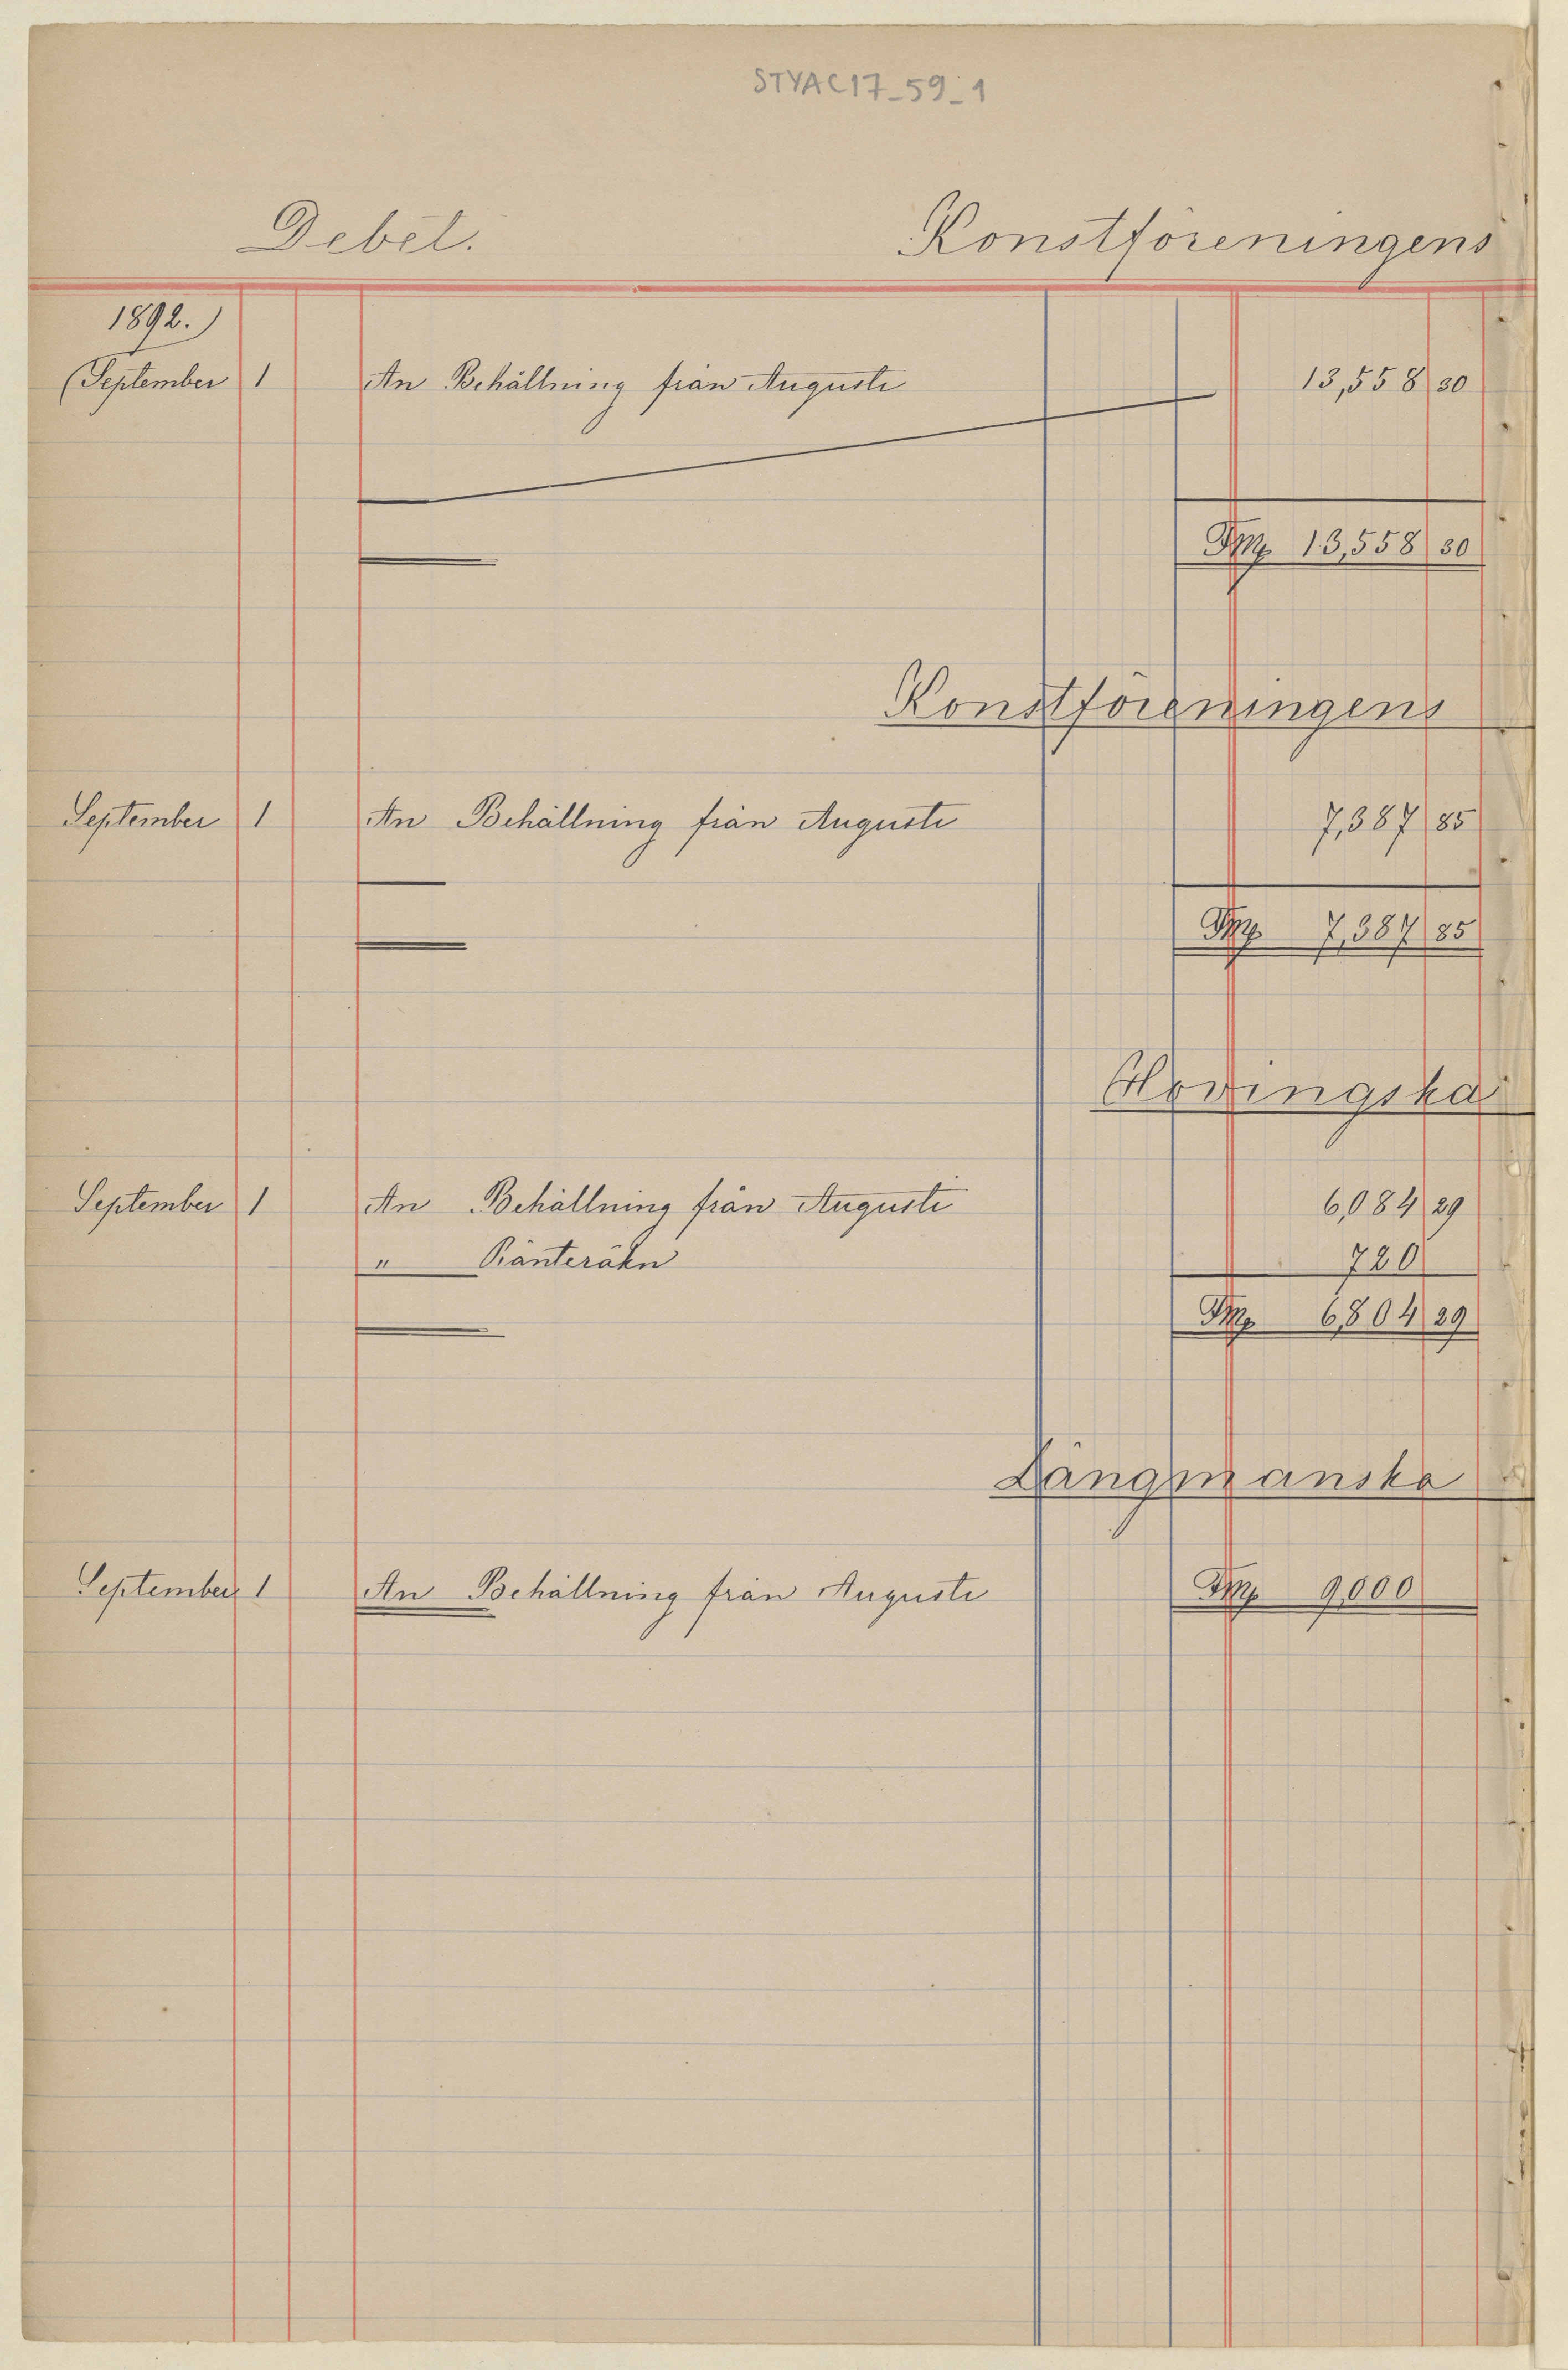 STYAC17_59_1
Debet. Konstföreningens
1892.)
(September 1 An Behållning från Augusti 13,558 30
Fmk 13,558 30
Konstföreningens
September 1 An Behållning från Augusti 7,387 85
Fmk 7,387 85
Hovingska
September 1 An Behållning från Augusti 6,084 29
" Ränteräkn 720
Fmk 6,804 29
Längmanska
September 1 An Behållning från Augusti Fmk 9,000